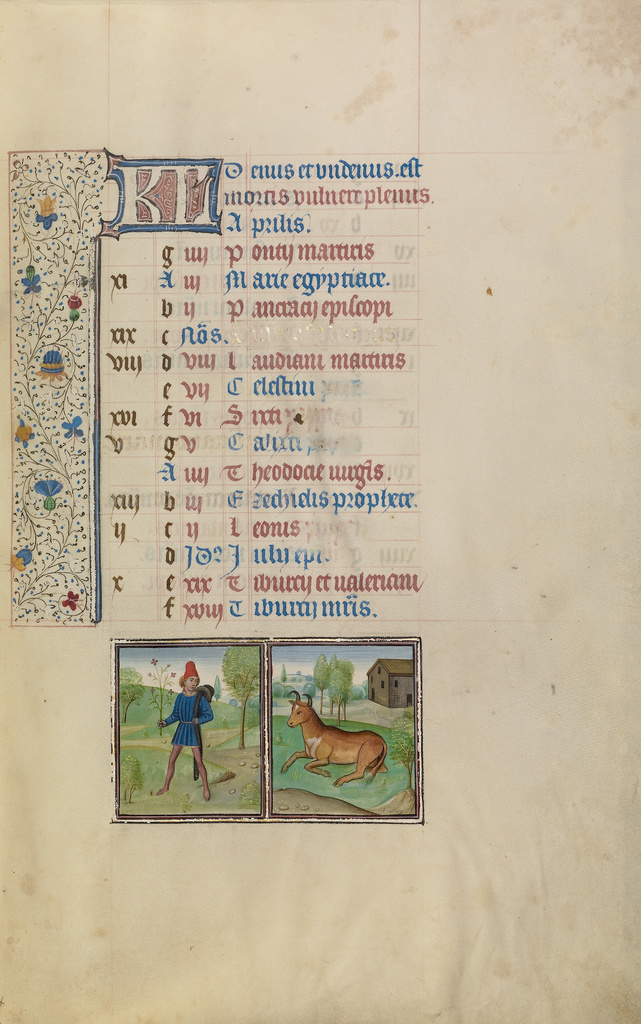 KL Denus et undenus est
mortis vulnere plenus.
Aprilis.
g iiij Pontij martiris
xi A iij Marie egyptiace.
b ij Pancracij episcopi
xix c Nōs.
viij d viij Laudiani martiris
e vij Celestini
xvi f vi Sixti
v g v Calixti
A iiij Theodocie uirgis.
xiij b iij Ezechielis prophete.
ij c ij Leonis
d Idꝰ Julij epi.
x e xix Tiburcij et ualeriani
f xviij Tiburcij mris.